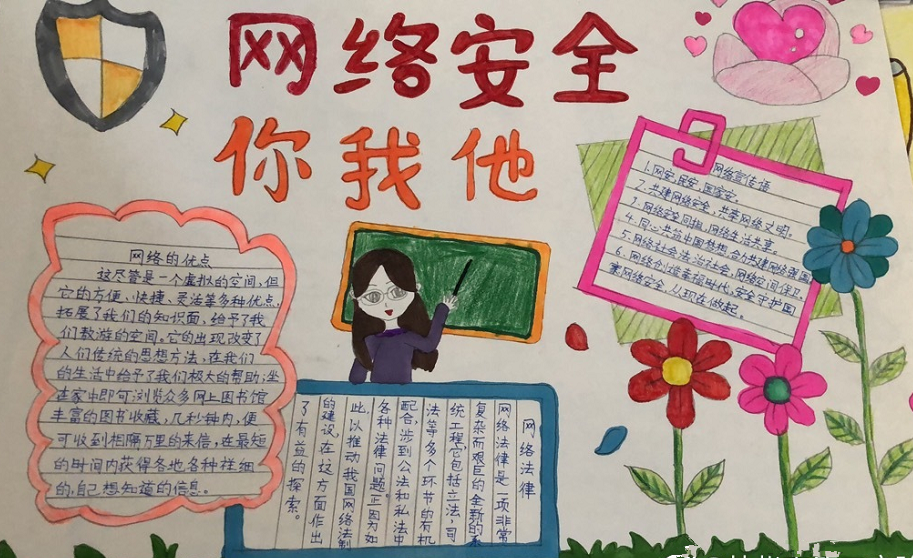 网络安全
你我他
网络的优点
这尽管是一个虚拟的空间,但
它的方便、快捷、灵活等多种优点,
拓展了我们的知识面,给予了我
们遨游的空间。它的出现改变了
人们传统的思想方法,在我们
的生活中给予了我们极大的帮助:坐
在家中即可浏览众多网上图书馆
丰富的图书收藏,几秒钟内,便
可收到相隔万里的来信,在最短
的时间内获得各地各种祥细
的,自己想知道的信息。
网络法律
网络法律是一项非常
复杂而艰巨的全新的系
统工程,它包括立法,司
法等多个环节的有机
配合,涉到公法和私法中
各种法律问题。正因为如
此,以推动我国网络法制
的建设,在这方面作出
了有益的探索。
网络宣传语
1.网安,民安,国家安。
2.共建网络安全,共享网络文明。
3.网络安全同担,网络生活共享。
4.同心共筑中国梦想,合力共建网络强国
5.网络社会法治社会,网络空间
6.网络创造幸福时代,安全守护国
家网络安全,从现在做起。